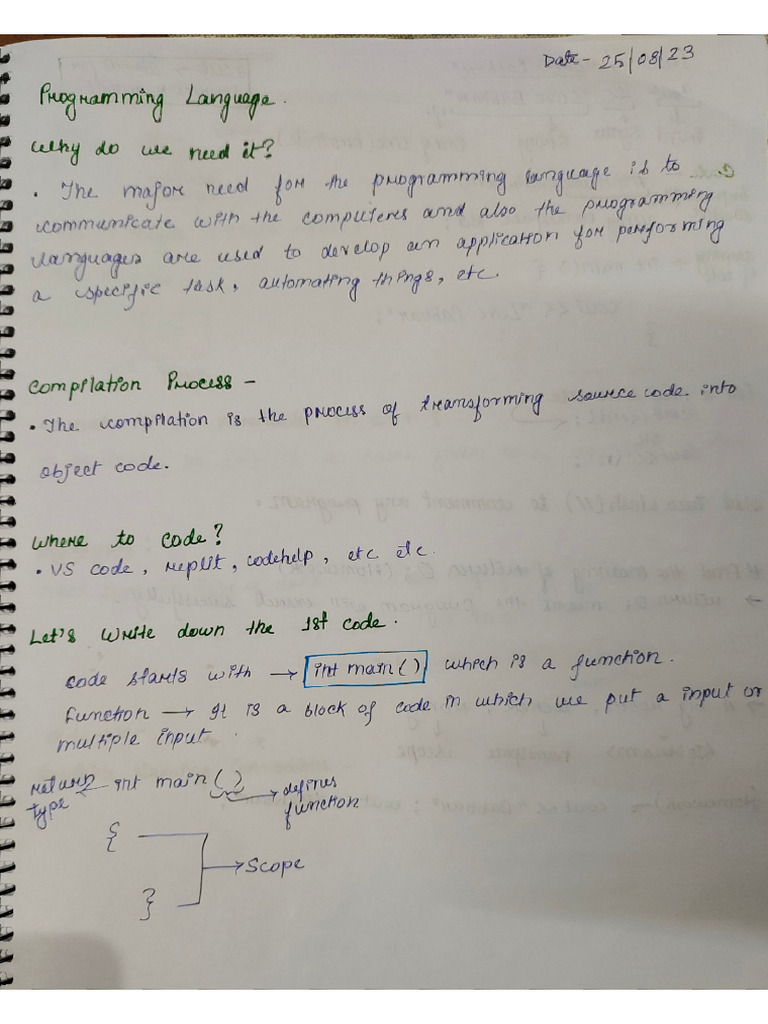 Date - 25/08/23
Programming Language.
Why do we need it?
• The major need for the programming language is to
communicate with the computers and also the programming
languages are used to develop an application for performing
a specific task, automating things, etc.
Compilation Process -
• The compilation is the process of transforming source code into
object code.
Where to code?
• VS code, replit, codehelp, etc etc.
Let's write down the 1st code.
code starts with → int main() which is a function.
function → It is a block of code in which we put a input or
multiple input.
return type ← int main() → defines function
{
→ Scope
}